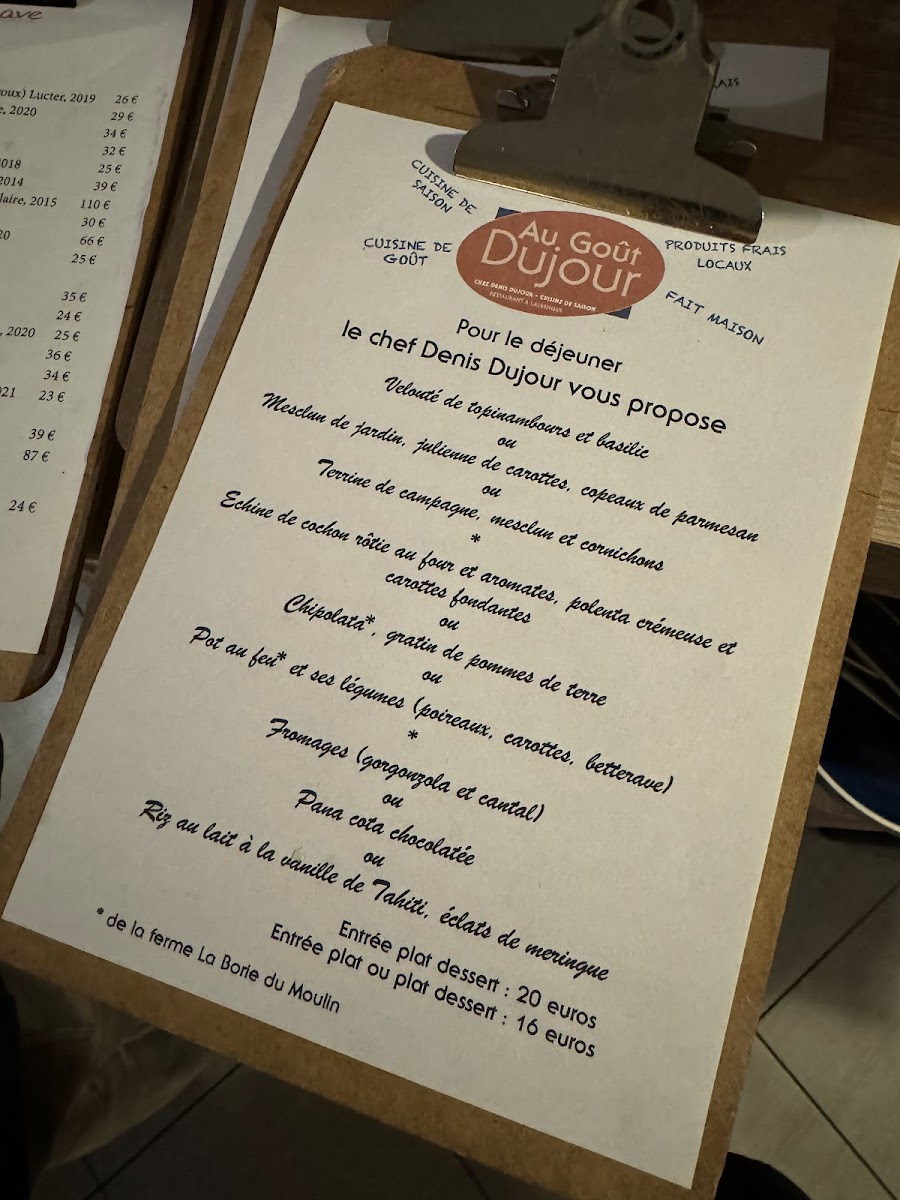 ave
oux) Lucter, 2019 26 €
, 2020 29 €
34 €
32 €
2018 25 €
2014 39 €
laire, 2015 110 €
30 €
20 66 €
25 €
35 €
24 €
, 2020 25 €
36 €
34 €
021 23 €
39 €
87 €
24 €
AIS
CUISINE DE
SAISON
CUISINE DE
GOÛT
Au Goût
Dujour
CHEZ DENIS DUJOUR • CUISINE DE SAISON
RESTAURANT À LALBENQUE
PRODUITS FRAIS
LOCAUX
FAIT MAISON
Pour le déjeuner
le chef Denis Dujour vous propose
Velouté de topinambours et basilic
ou
Mesclun de jardin, julienne de carottes, copeaux de parmesan
ou
Terrine de campagne, mesclun et cornichons
*
Echine de cochon rôtie au four et aromates, polenta crémeuse et
carottes fondantes
ou
Chipolata*, gratin de pommes de terre
ou
Pot au feu* et ses légumes (poireaux, carottes, betterave)
*
Fromages (gorgonzola et cantal)
ou
Pana cota chocolatée
ou
Riz au lait à la vanille de Tahiti, éclats de meringue
Entrée plat dessert : 20 euros
Entrée plat ou plat dessert : 16 euros
* de la ferme La Borie du Moulin